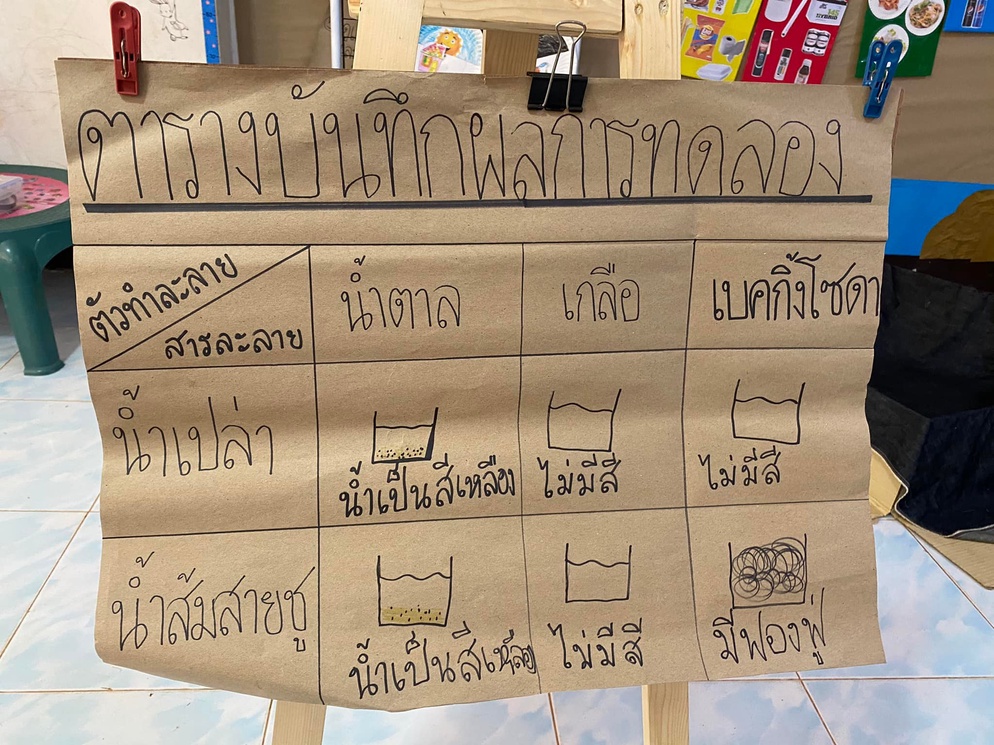 ตารางบันทึกผลการทดลอง
ตัวทำละลาย
สารละลาย
น้ำตาล
เกลือ
เบคกิ้งโซดา
น้ำเปล่า
น้ำเป็นสีเหลือง
ไม่มีสี
ไม่มีสี
น้ำส้มสายชู
น้ำเป็นสีเหลือง
ไม่มีสี
มีฟองฟู่